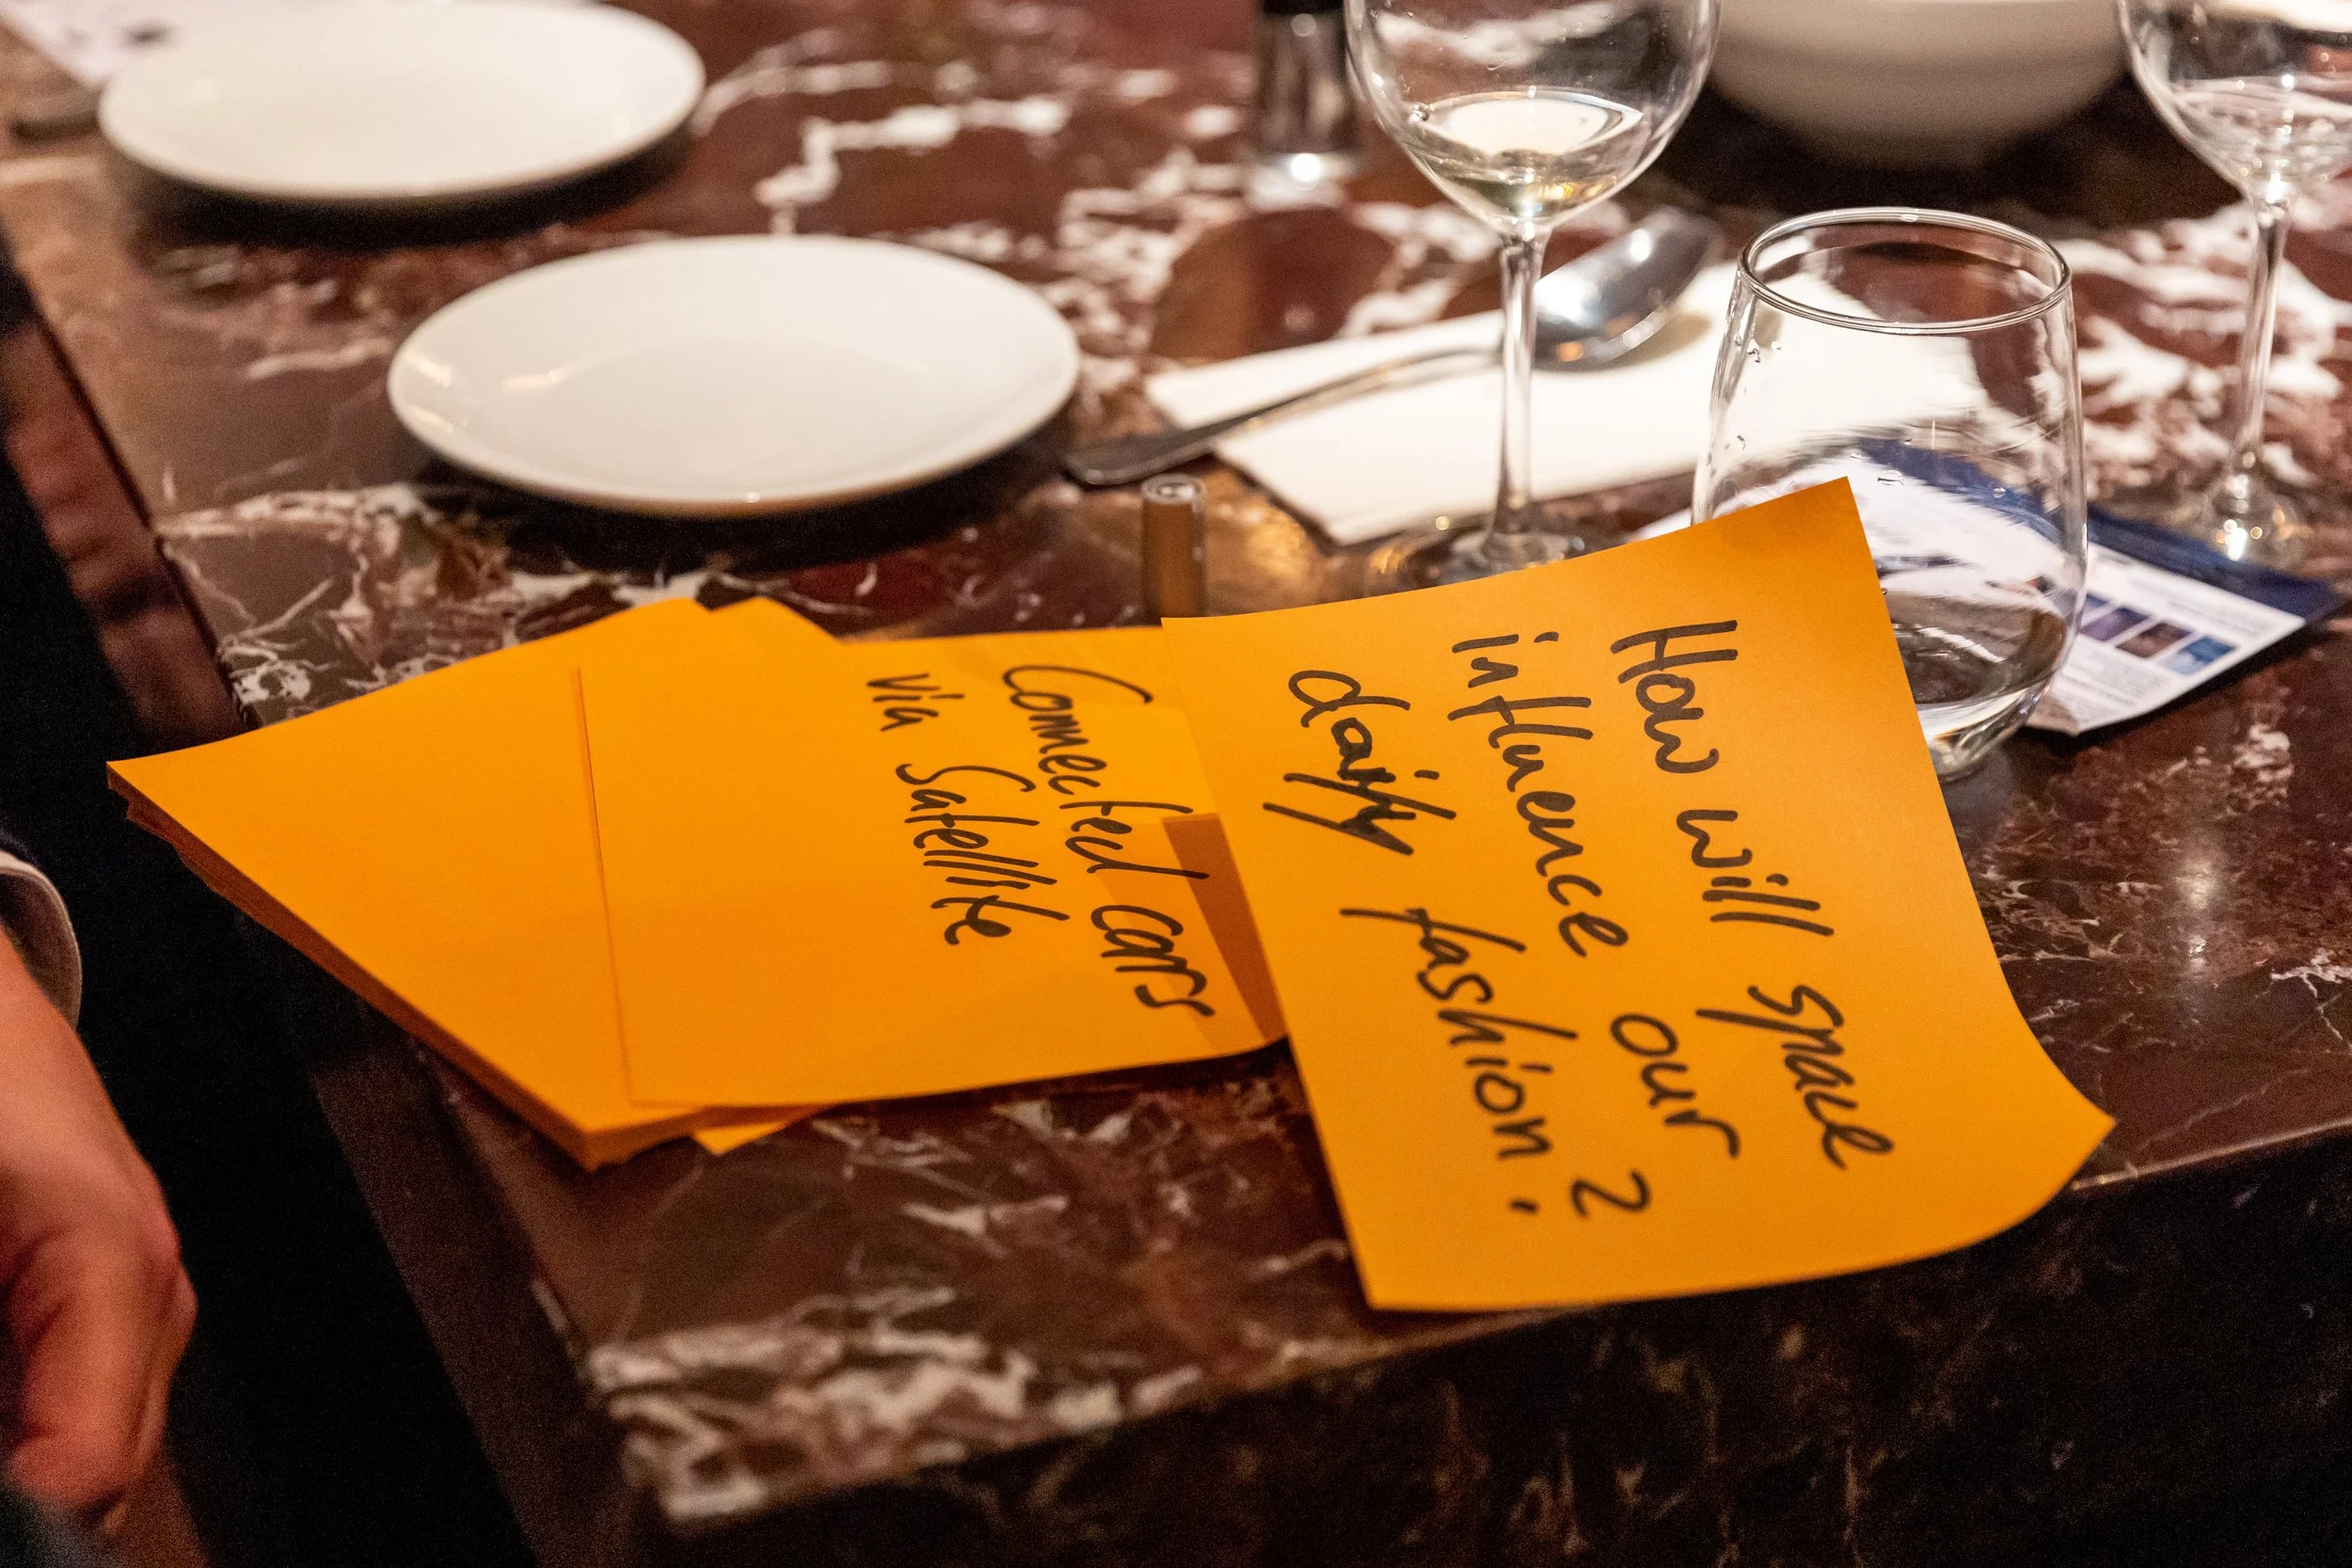 How will space
influence our
daily fashion?
Connected Cars
via Satellite